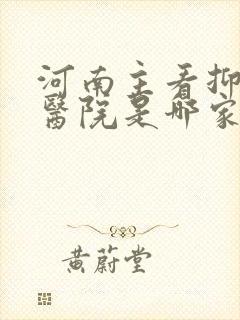 河南主看抑
醫院是哪家
黃蔚堂